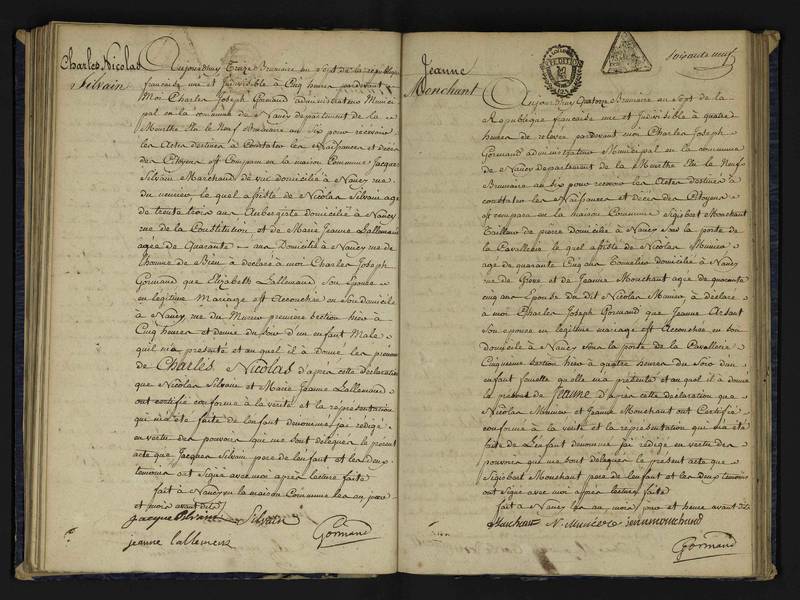 Charles Nicolas
Silvain
Aujourd'huy Treze Brumaire an Sept de la republique
francaise une et Indivisible à Cinq heures pardevant
Moi Charles Joseph Gormand administrateur Munici
pal en la commune de Nancy departement de la
Meurthe Elu le Neuf Brumaire an Six pour recevoir
les Actes destinés à Constater les Naissances et décès
des Citoyens est Comparu en la maison Commune Jacques
Silvain Marchand de vin domicilié à Nancy rue
du le quel assisté de Nicolas Silvain agé
de trente trois ans Aubergiste domicilié à Nancy
rue de la Constitution et de Marie Jeanne Lallemand
agée de quarante ans Domiciliée à Nancy rue de
l'homme de Bien à déclaré à moi Charles Joseph
Gormand que Elizabeth Lallemand Son Epouse
en legitime Mariage est Accouchée en Son domicile
à Nancy rue du premiere Section hier à
Cinq heures et demie du Soir d'un enfant Male
qu'il m'a presenté et au quel il à donné les prenoms
de Charles Nicolas d'après cette déclaration
que Nicolas Silvain et Marie Jeanne Lallemand
ont certifié conforme à la verité et la réprésentation
qui m'a été faite de l'enfant denommé j'ai redigé
en vertu des pouvoirs qui me sont délegués le present
acte que Jacques Silvain pere de l'enfant et les deux
temoins ont Signé avec moi après lecture faite
fait à Nancy en la maison Commune les an jour
et mois avant dits
Jacque Silvain Silvain
jeanne lallement Gormand
Jeanne
Mouchant
soixante neuf
Aujourd'huy quatorze Brumaire an Sept de la
Republique francaise une et Indivisible à quatre
heures de relevée pardevant moi Charles Joseph
Gormand administrateur Municipal en la commune
de Nancy departement de la Meurthe Elu le Neuf
Brumaire an Six pour recevoir les Actes destinés à
constater les Naissances et décès des Citoyens
est comparu en la maison Commune Sigisbert Mouchant
Tailleur de pierre domicilié à Nancy sous la porte de
la Cavallerie le quel assisté de Nicolas
agé de quarante Cinq ans domicilié à Nancy
rue de Greve et de Jeanne Mouchant agée de quarante
cinq ans Epouse du dit Nicolas à déclaré
à moi Charles Joseph Gormand que Jeanne
Son epouse en legitime mariage est Accouchée en Son
domicile à Nancy Sous la porte de la Cavallerie
Cinquieme Section hier à quatre heures du Soir d'un
enfant femelle qu'elle m'a présenté et au quel il à donné
le prenom de Jeanne d'après cette déclaration que
Nicolas et Jeanne Mouchant ont Certifié
conforme à la verité et la réprésentation qui m'a été
faite de L'enfant denommé j'ai redigé en vertu des
pouvoirs qui me sont délegués le présent acte que
Sigisbert Mouchant pere de l'enfant et les deux temoins
ont Signé avec moi après lecture faite
fait à Nancy les an mois jour et heure avant dits
Mouchant jeanne mouchand
Gormand